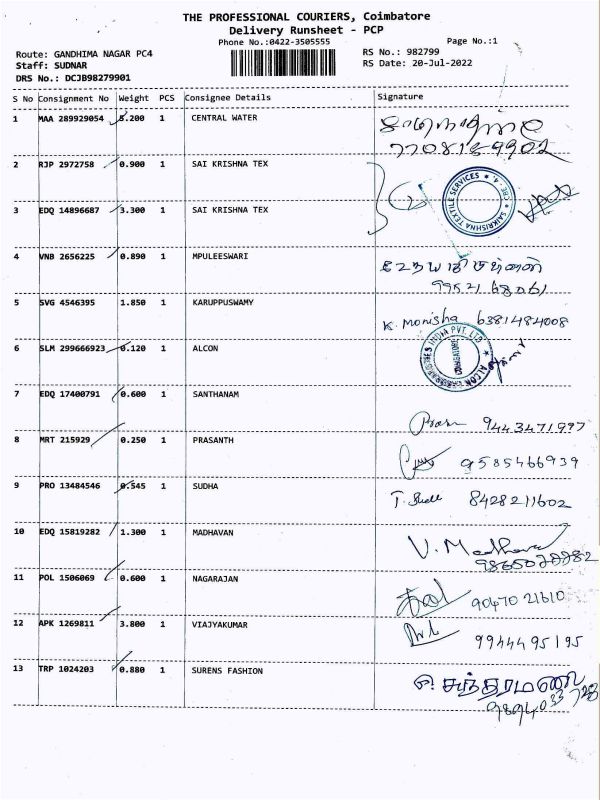 THE PROFESSIONAL COURIERS, Coimbatore
Delivery Runsheet - PCP
Phone No.:0422-3505555 Page No.:1
Route: GANDHIMA NAGAR PC4 RS No.: 982799
Staff: SUDNAR RS Date: 20-Jul-2022
DRS No.: DCJB98279901
S No Consignment No Weight PCS Consignee Details Signature
1 MAA 289929054 5.200 1 CENTRAL WATER
2 RJP 2972758 0.900 1 SAI KRISHNA TEX
SAIKRISHNA TEXTILE SERVICES
CBE - 4.
3 EDQ 14896687 3.300 1 SAI KRISHNA TEX
4 VNB 2656225 0.890 1 MPULEESWARI
5 SVG 4546395 1.850 1 KARUPPUSWAMY K. Monisha 6381484008
6 SLM 299666923 0.120 1 ALCON
7 EDQ 17400791 0.600 1 SANTHANAM 9443471997
8 MRT 215929 0.250 1 PRASANTH 9585466939
9 PRO 13484546 0.545 1 SUDHA 8428211602
10 EDQ 15819282 1.300 1 MADHAVAN V. Madhavan
11 POL 1506069 0.600 1 NAGARAJAN 9047021610
12 APK 1269811 3.800 1 VIAJYAKUMAR 9944495195
13 TRP 1024203 0.880 1 SURENS FASHION